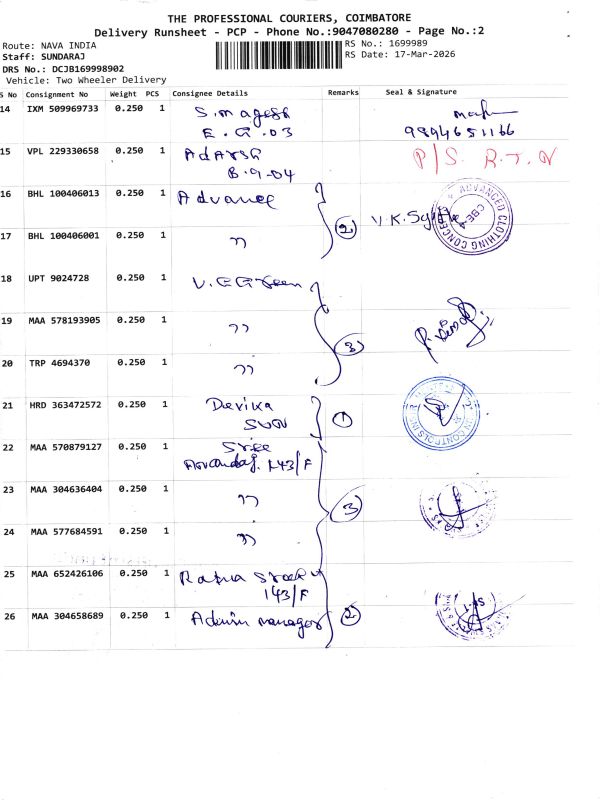 THE PROFESSIONAL COURIERS, COIMBATORE
Delivery Runsheet - PCP - Phone No.:9047080280 - Page No.:2
Route: NAVA INDIA
RS No.: 1699989
Staff: SUNDARAJ
RS Date: 17-Mar-2026
DRS No.: DCJB169998902
Vehicle: Two Wheeler Delivery
S No Consignment No Weight PCS Consignee Details Remarks Seal & Signature
14 IXM 509969733 0.250 1 S. magesh
E.G.03 9894651166
15 VPL 229330658 0.250 1 Adarsh P/S. R.T.N
B.9-04
16 BHL 100406013 0.250 1 Advance
2 V.K.
ADVANCED CLOTHING CONCEPTS
CBE
17 BHL 100406001 0.250 1 ”
18 UPT 9024728 0.250 1 V. Green
19 MAA 578193905 0.250 1 ”
3
20 TRP 4694370 0.250 1 ”
21 HRD 363472572 0.250 1 Devika
SUN 1
22 MAA 570879127 0.250 1 Sree
143/F
23 MAA 304636404 0.250 1 ”
3
24 MAA 577684591 0.250 1 ”
25 MAA 652426106 0.250 1 Ratna Sree
143/F
26 MAA 304658689 0.250 1 Admin manager 2